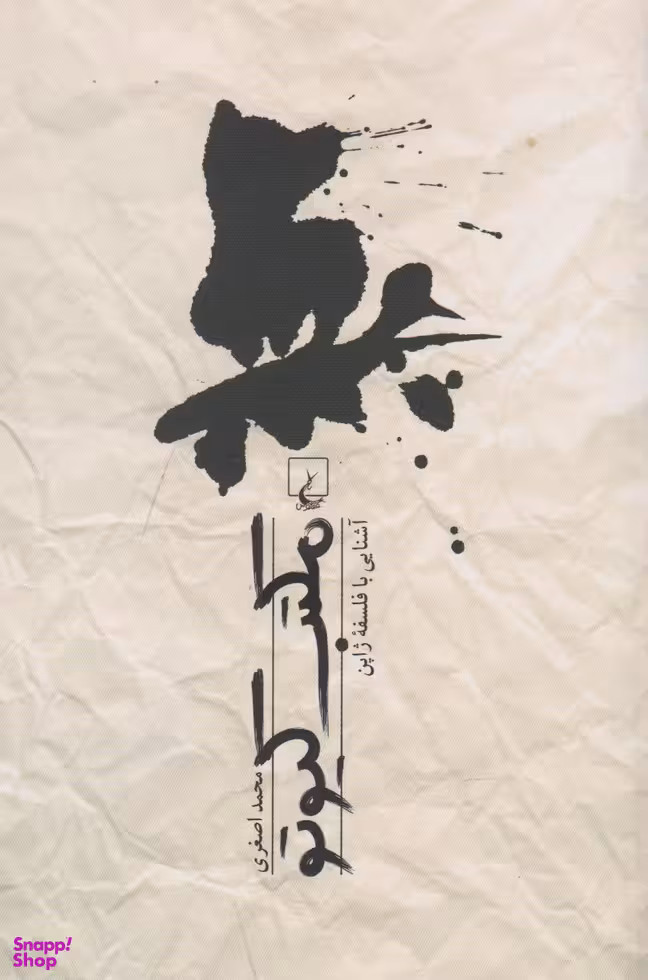 محمد اصغری
مکتب کیوتو
آشنایی با فلسفهٔ ژاپن
Snapp!
Shop